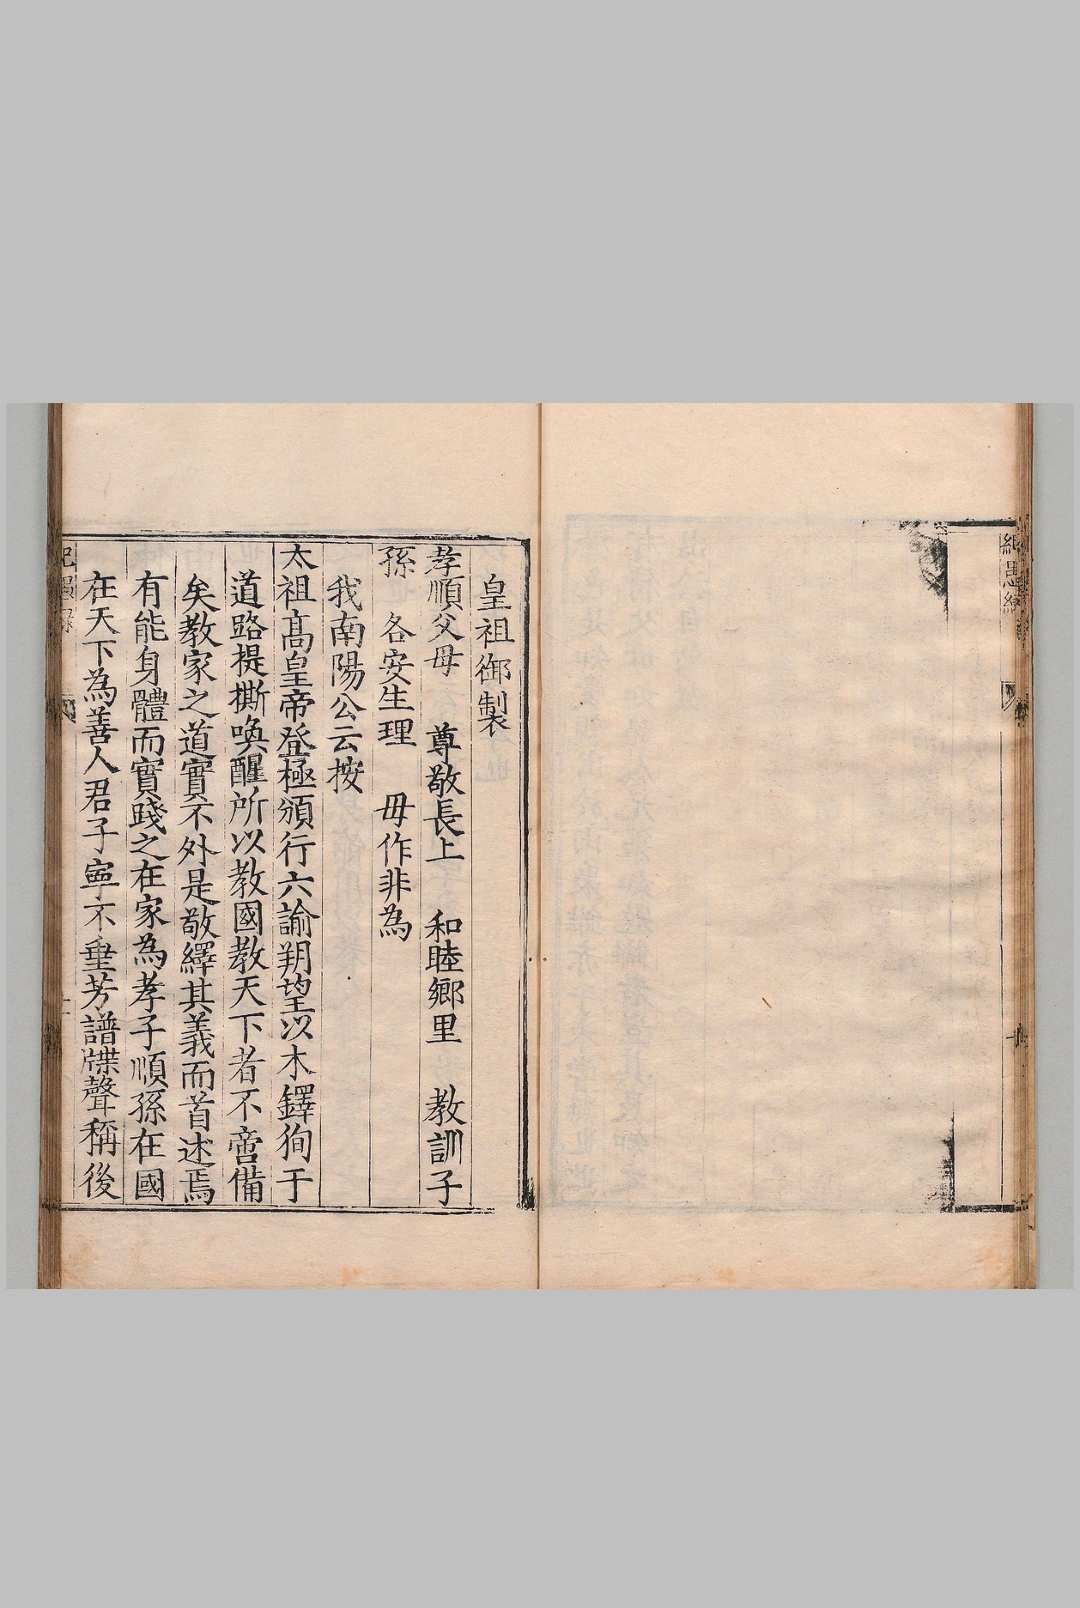 皇祖御製
孝順父母 尊敬長上 和睦鄉里 教訓子
孫 各安生理 毋作非為
我南陽公云按
太祖高皇帝登極頒行六諭朔望以木鐸狥于
道路提撕喚醒所以教國教天下者不啻備
矣教家之道實不外是敬繹其義而首述焉
有能身體而實踐之在家為孝子順孫在國
在天下為善人君子寧不垂芳譜牒聲稱後